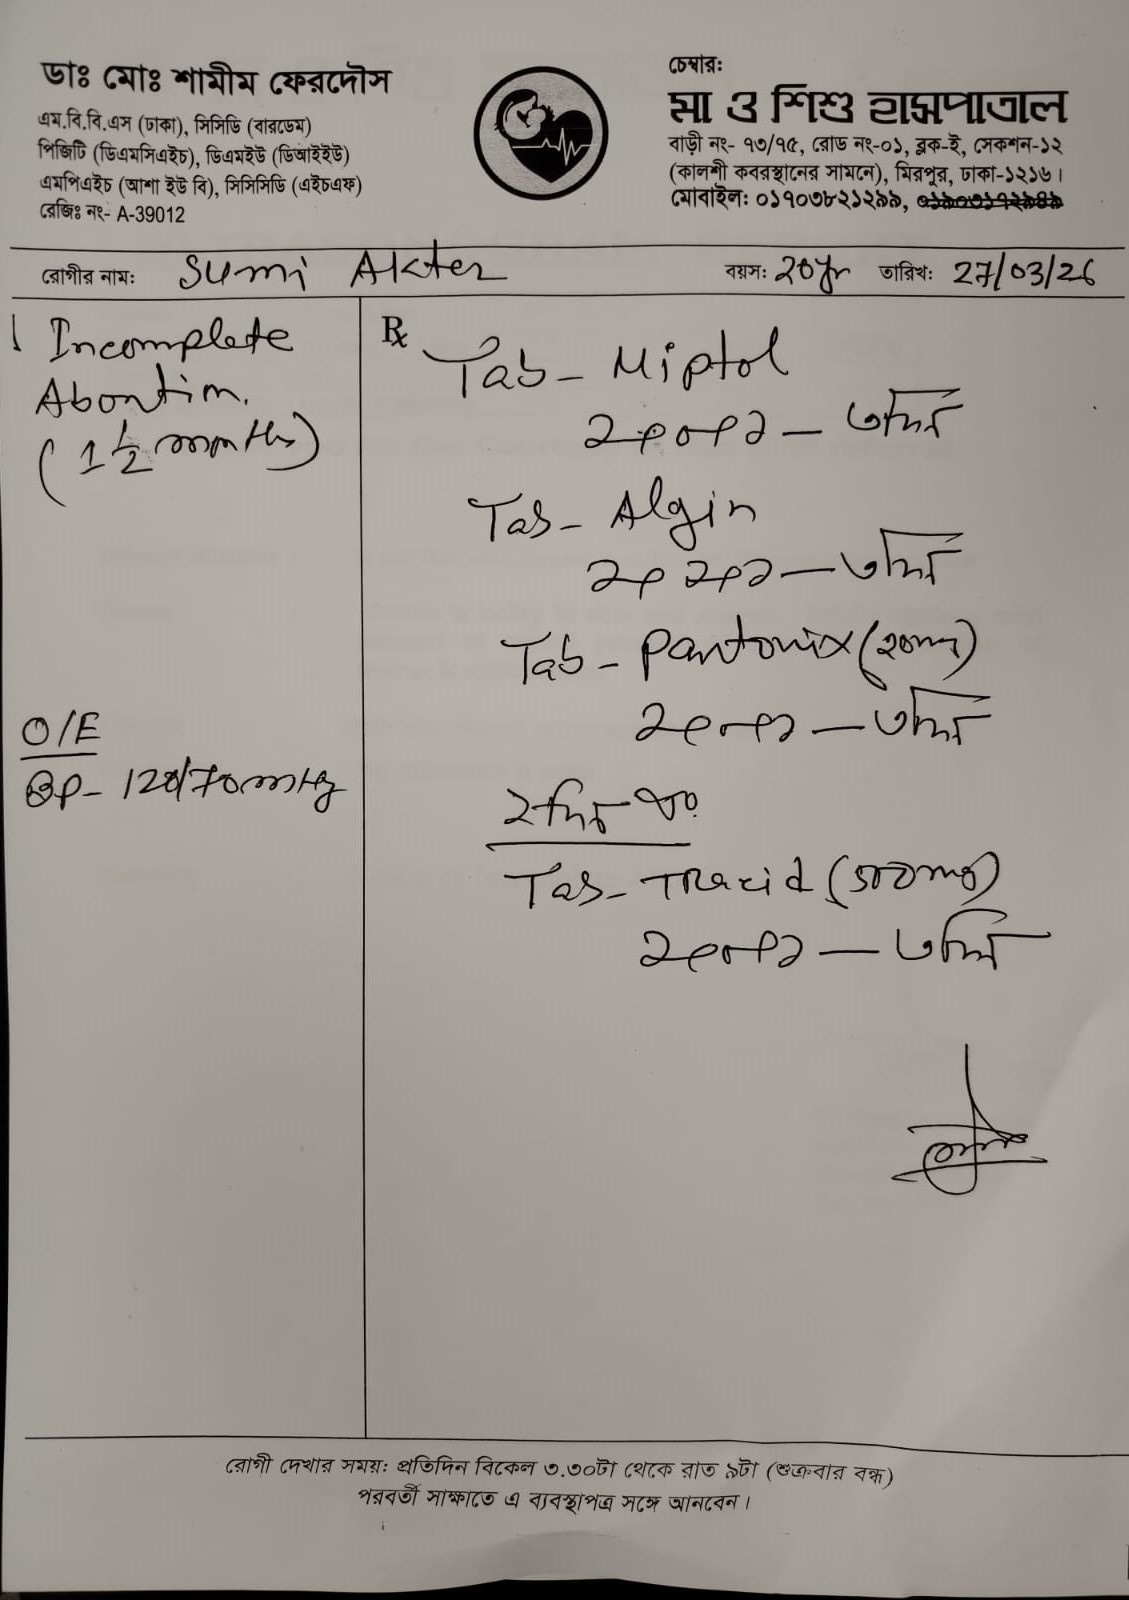 ডাঃ মোঃ শামীম ফেরদৌস
এম.বি.বি.এস (ঢাকা), সিসিডি (বারডেম)
পিজিটি (ডিএমসিএইচ), ডিএমইউ (ডিআইইউ)
এমপিএইচ (আশা ইউ বি), সিসিসিডি (এইচএফ)
রেজিঃ নং- A-39012
চেম্বার:
মা ও শিশু হাসপাতাল
বাড়ী নং- ৭৩/৭৫, রোড নং-০১, ব্লক-ই, সেকশন-১২
(কালশী কবরস্থানের সামনে), মিরপুর, ঢাকা-১২১৬।
মোবাইল: ০১৭০৩৮২১২৯৯,
রোগীর নাম: Sumi Akter বয়স: 20yr তারিখ: 27/03/26
Incomplete
Abortion.
(1 1/2 months)
O/E
BP- 120/70mmHg
Rx
Tab- Miptol
২+০+২ —
Tab- Algin
২+২+২ —
Tab- Pantonix (20mg)
Tab- Tracid (500mg)
রোগী দেখার সময়: প্রতিদিন বিকেল ৩.৩০টা থেকে রাত ৯টা (শুক্রবার বন্ধ)
পরবর্তী সাক্ষাতে এ ব্যবস্থাপত্র সঙ্গে আনবেন।